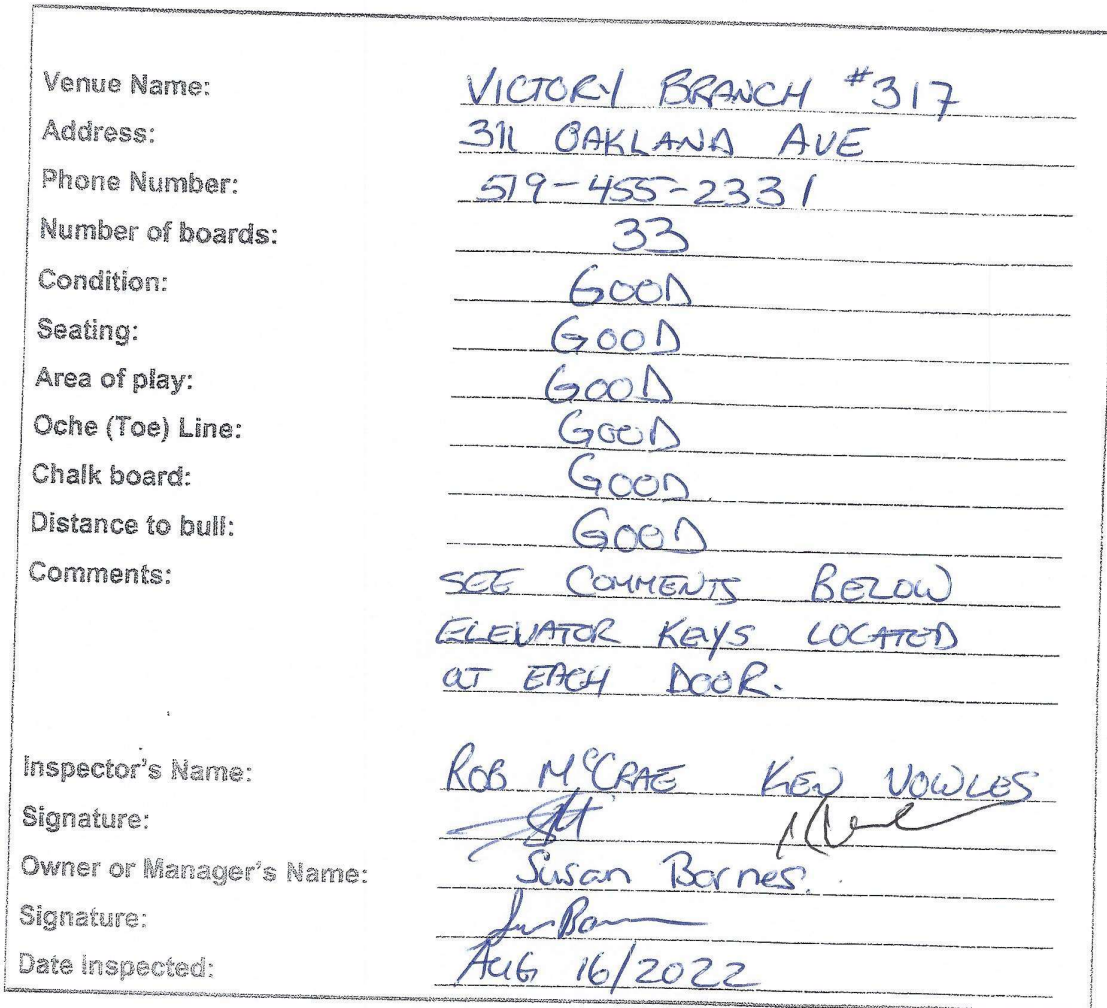 Venue Name: VICTORY BRANCH #317
Address: 311 OAKLAND AVE
Phone Number: 519-455-2331
Number of boards: 33
Condition: GOOD
Seating: GOOD
Area of play: GOOD
Oche (Toe) Line: GOOD
Chalk board: GOOD
Distance to bull: GOOD
Comments: SEE COMMENTS BELOW
ELEVATOR KEYS LOCATED
AT EACH DOOR.
Inspector's Name: ROB McCRAE KEN VOWLES
Signature:
Owner or Manager's Name: Susan Barnes.
Signature:
Date inspected: AUG 16/2022